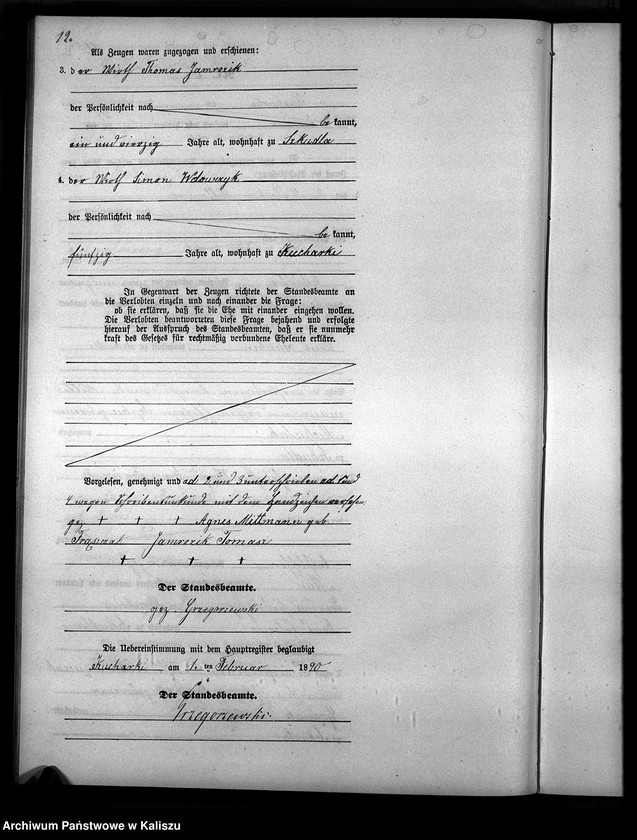 12.
Als Zeugen waren zugezogen und erschienen:
3. der Wirth Thomas Jamrozik
der Persönlichkeit nach
be kannt,
ein und vierzig Jahre alt, wohnhaft zu Szkudla
4. der Wirth Simon Wdowczyk
der Persönlichkeit nach
be kannt,
fünfzig Jahre alt, wohnhaft zu Kucharki
In Gegenwart der Zeugen richtete der Standesbeamte an
die Verlobten einzeln und nach einander die Frage:
ob sie erklären, daß sie die Ehe mit einander eingehen wollen.
Die Verlobten beantworteten diese Frage bejahend und erfolgte
hierauf der Ausspruch des Standesbeamten, daß er sie nunmehr
kraft des Gesetzes für rechtmäßig verbundene Eheleute erkläre.
Vorgelesen, genehmigt und ad 2 und 3 unterschrieben ad 1 und
4 wegen Schreibensunkunde mit dem Handzeichen versehen
gez. + + + Agnes Mittmann geb.
Jamrozik Tomasz
+ + +
Der Standesbeamte.
gez. Grzegorzewski
Die Uebereinstimmung mit dem Hauptregister beglaubigt
Kucharki am 1. ten Februar 1890
Der Standesbeamte.
Grzegorzewski.
Archiwum Państwowe w Kaliszu